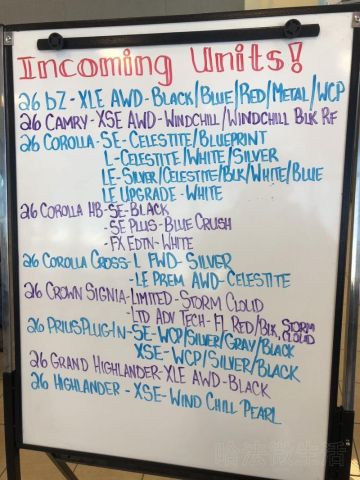 Incoming Units!
26 bZ - XLE AWD - Black/Blue/Red/Metal/WCP
26 Camry - XSE AWD - Windchill/Windchill Blk Rf
26 Corolla - SE - Celestite/Blueprint
L - Celestite/White/Silver
LE - Silver/Celestite/Blk/White/Blue
LE Upgrade - White
26 Corolla HB - SE - Black
- SE Plus - Blue Crush
- FX Edtn - White
26 Corolla Cross - L FWD - Silver
- LE Prem AWD - Celestite
26 Crown Signia - Limited - Storm Cloud
- Ltd Adv Tech - Fl Red/Blk, Storm Cloud
26 Prius Plug-In - SE - WCP/Silver/Gray/Black
XSE - WCP/Silver/Black
26 Grand Highlander - XLE AWD - Black
26 Highlander - XSE - Wind Chill Pearl